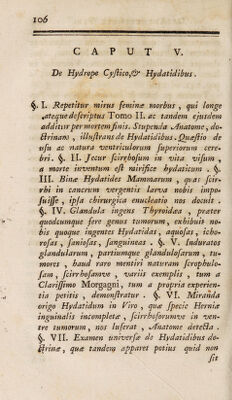 106
CAPUT V.
De Hydrope Cystico, & Hydatidibus.
§. I. Repetitur mirus feminæ morbus, qui longe
atque descriptus Tomo II. ac tandem ejusdem
additur per mortem finis. Stupenda Anatome, do-
ctrinam, illustrans de Hydatidibus. Quæstio de
usu ac natura ventriculorum superiorum cere-
bri. §. II. Jecur scirrhosum in vita visum,
a morte inventum est mirifice hydaticum. §.
III. Binæ Hydatides Mammarum, quas scir-
rhi in cancrum vergentis larva nobis impo-
suisse, ipsa chirurgica enucleatio nos docuit.
§. IV. Glandula ingens Thyroidæa, præter
quodcumque fere genus tumorum, exhibuit no-
bis quoque ingentes Hydatidas, aquosas, icho-
rosas, saniosas, sanguineas. §. V. Induratos
glandularum, partiumque glandulosarum, tu-
mores, haud raro mentiri naturam scrophulo-
sam, scirrhosamve, variis exemplis, tum a
Clarissimo Morgagni, tum a propria experien-
tia petitis, demonstratur. §. VI. Miranda
origo Hydatidum in Viro, quæ specie Herniæ
inguinalis incompletæ, scirrhosorumve in ven-
tre tumorum, nos luserat, Anatome detecta.
§. VII. Examen universæ de Hydatidibus do-
ctrinæ, quæ tandem apparet potius quid non
sit